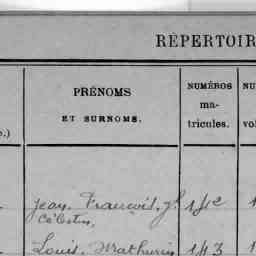 RÉPERTOIR
PRÉNOMS
ET SURNOMS.
NUMÉROS
ma-
tricules.
NU
vol
e.)
Jean, François, j^h
Célestin,
Louis, Mathurin 143